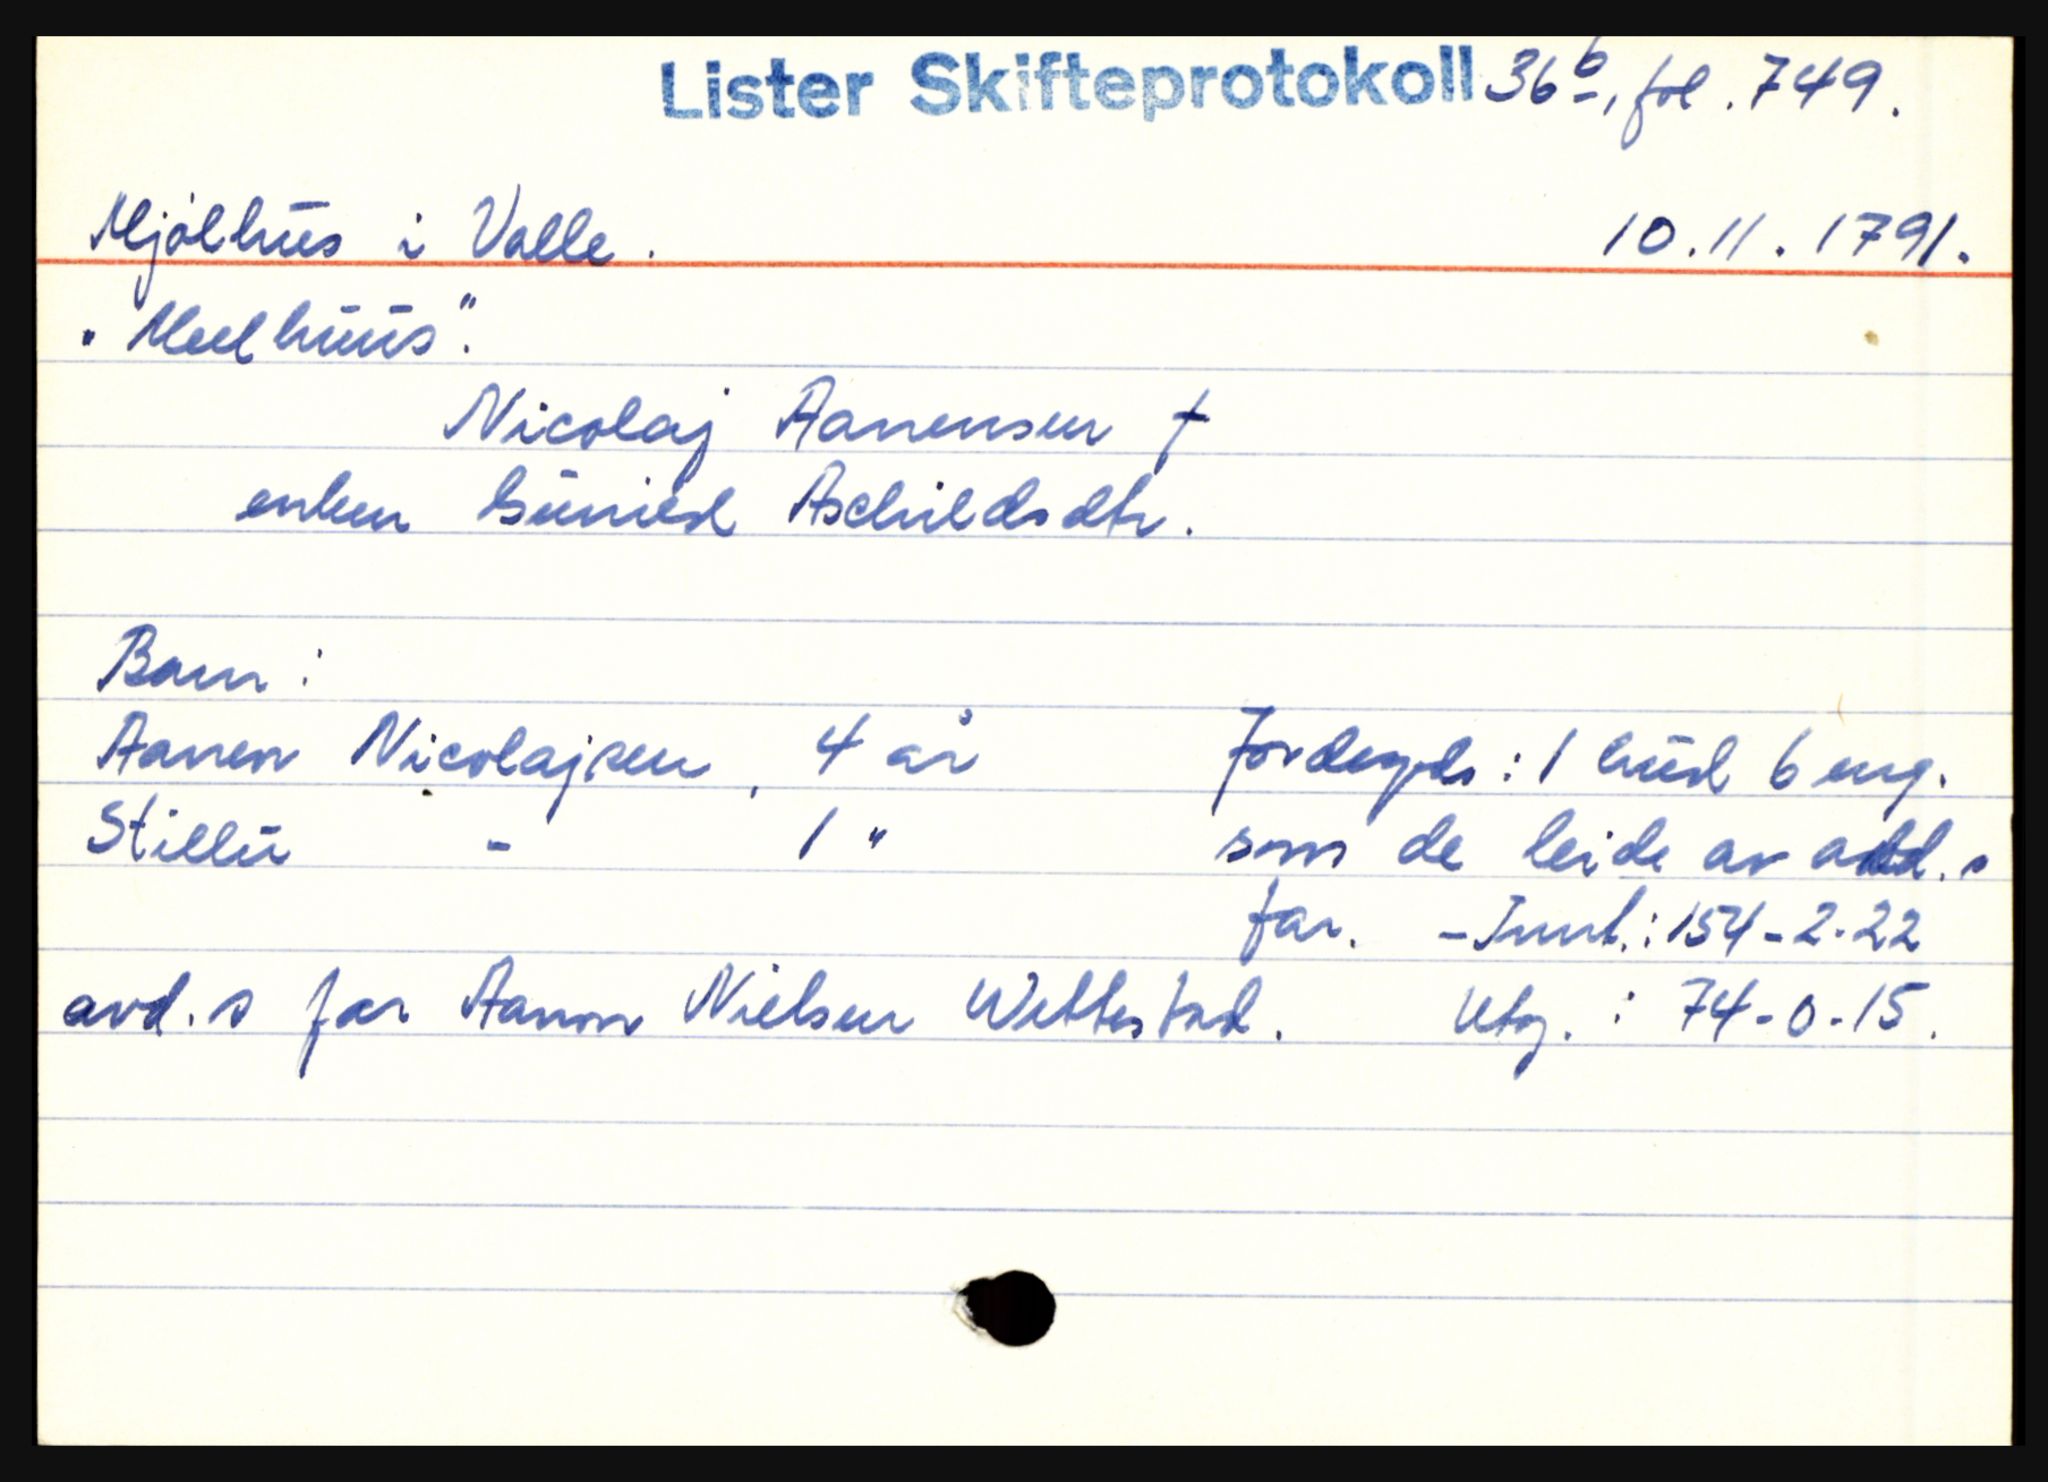 Lister Skifteprotokoll 36b, fol. 749.
Mjølhus i Valle. 10.11.1791.
"Meelhuus".
Nicolaj Aanensen †
enken Gunild Aschildsdtr.
Barn:
Aanen Nicolajsen, 4 år Jordegods: 1 hud 6 eng.
Stillu - 1 " som de leide av avd.s
far. - Innt.: 154-2-22
avd.s far Aanon Nielsen Wittestad. Utg.: 74-0-15.